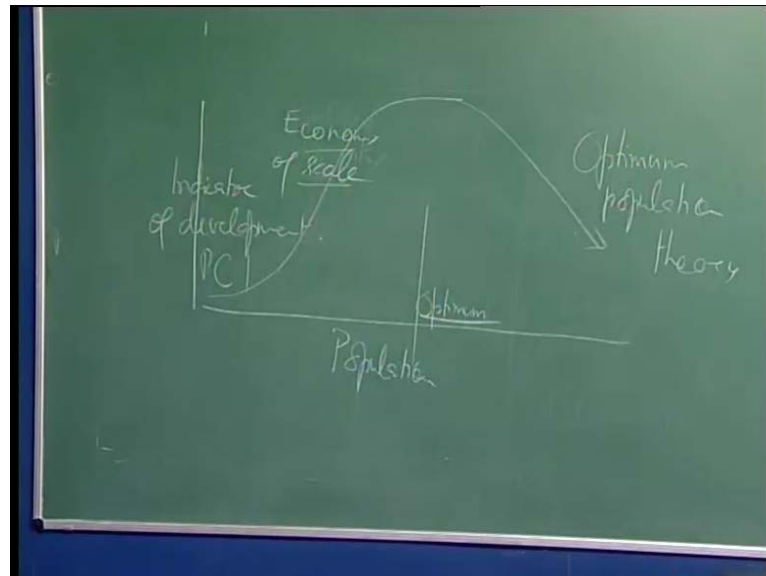 Economy
of scale
Indicator
of development
PC
Optimum
population
theory
Optimum
Population